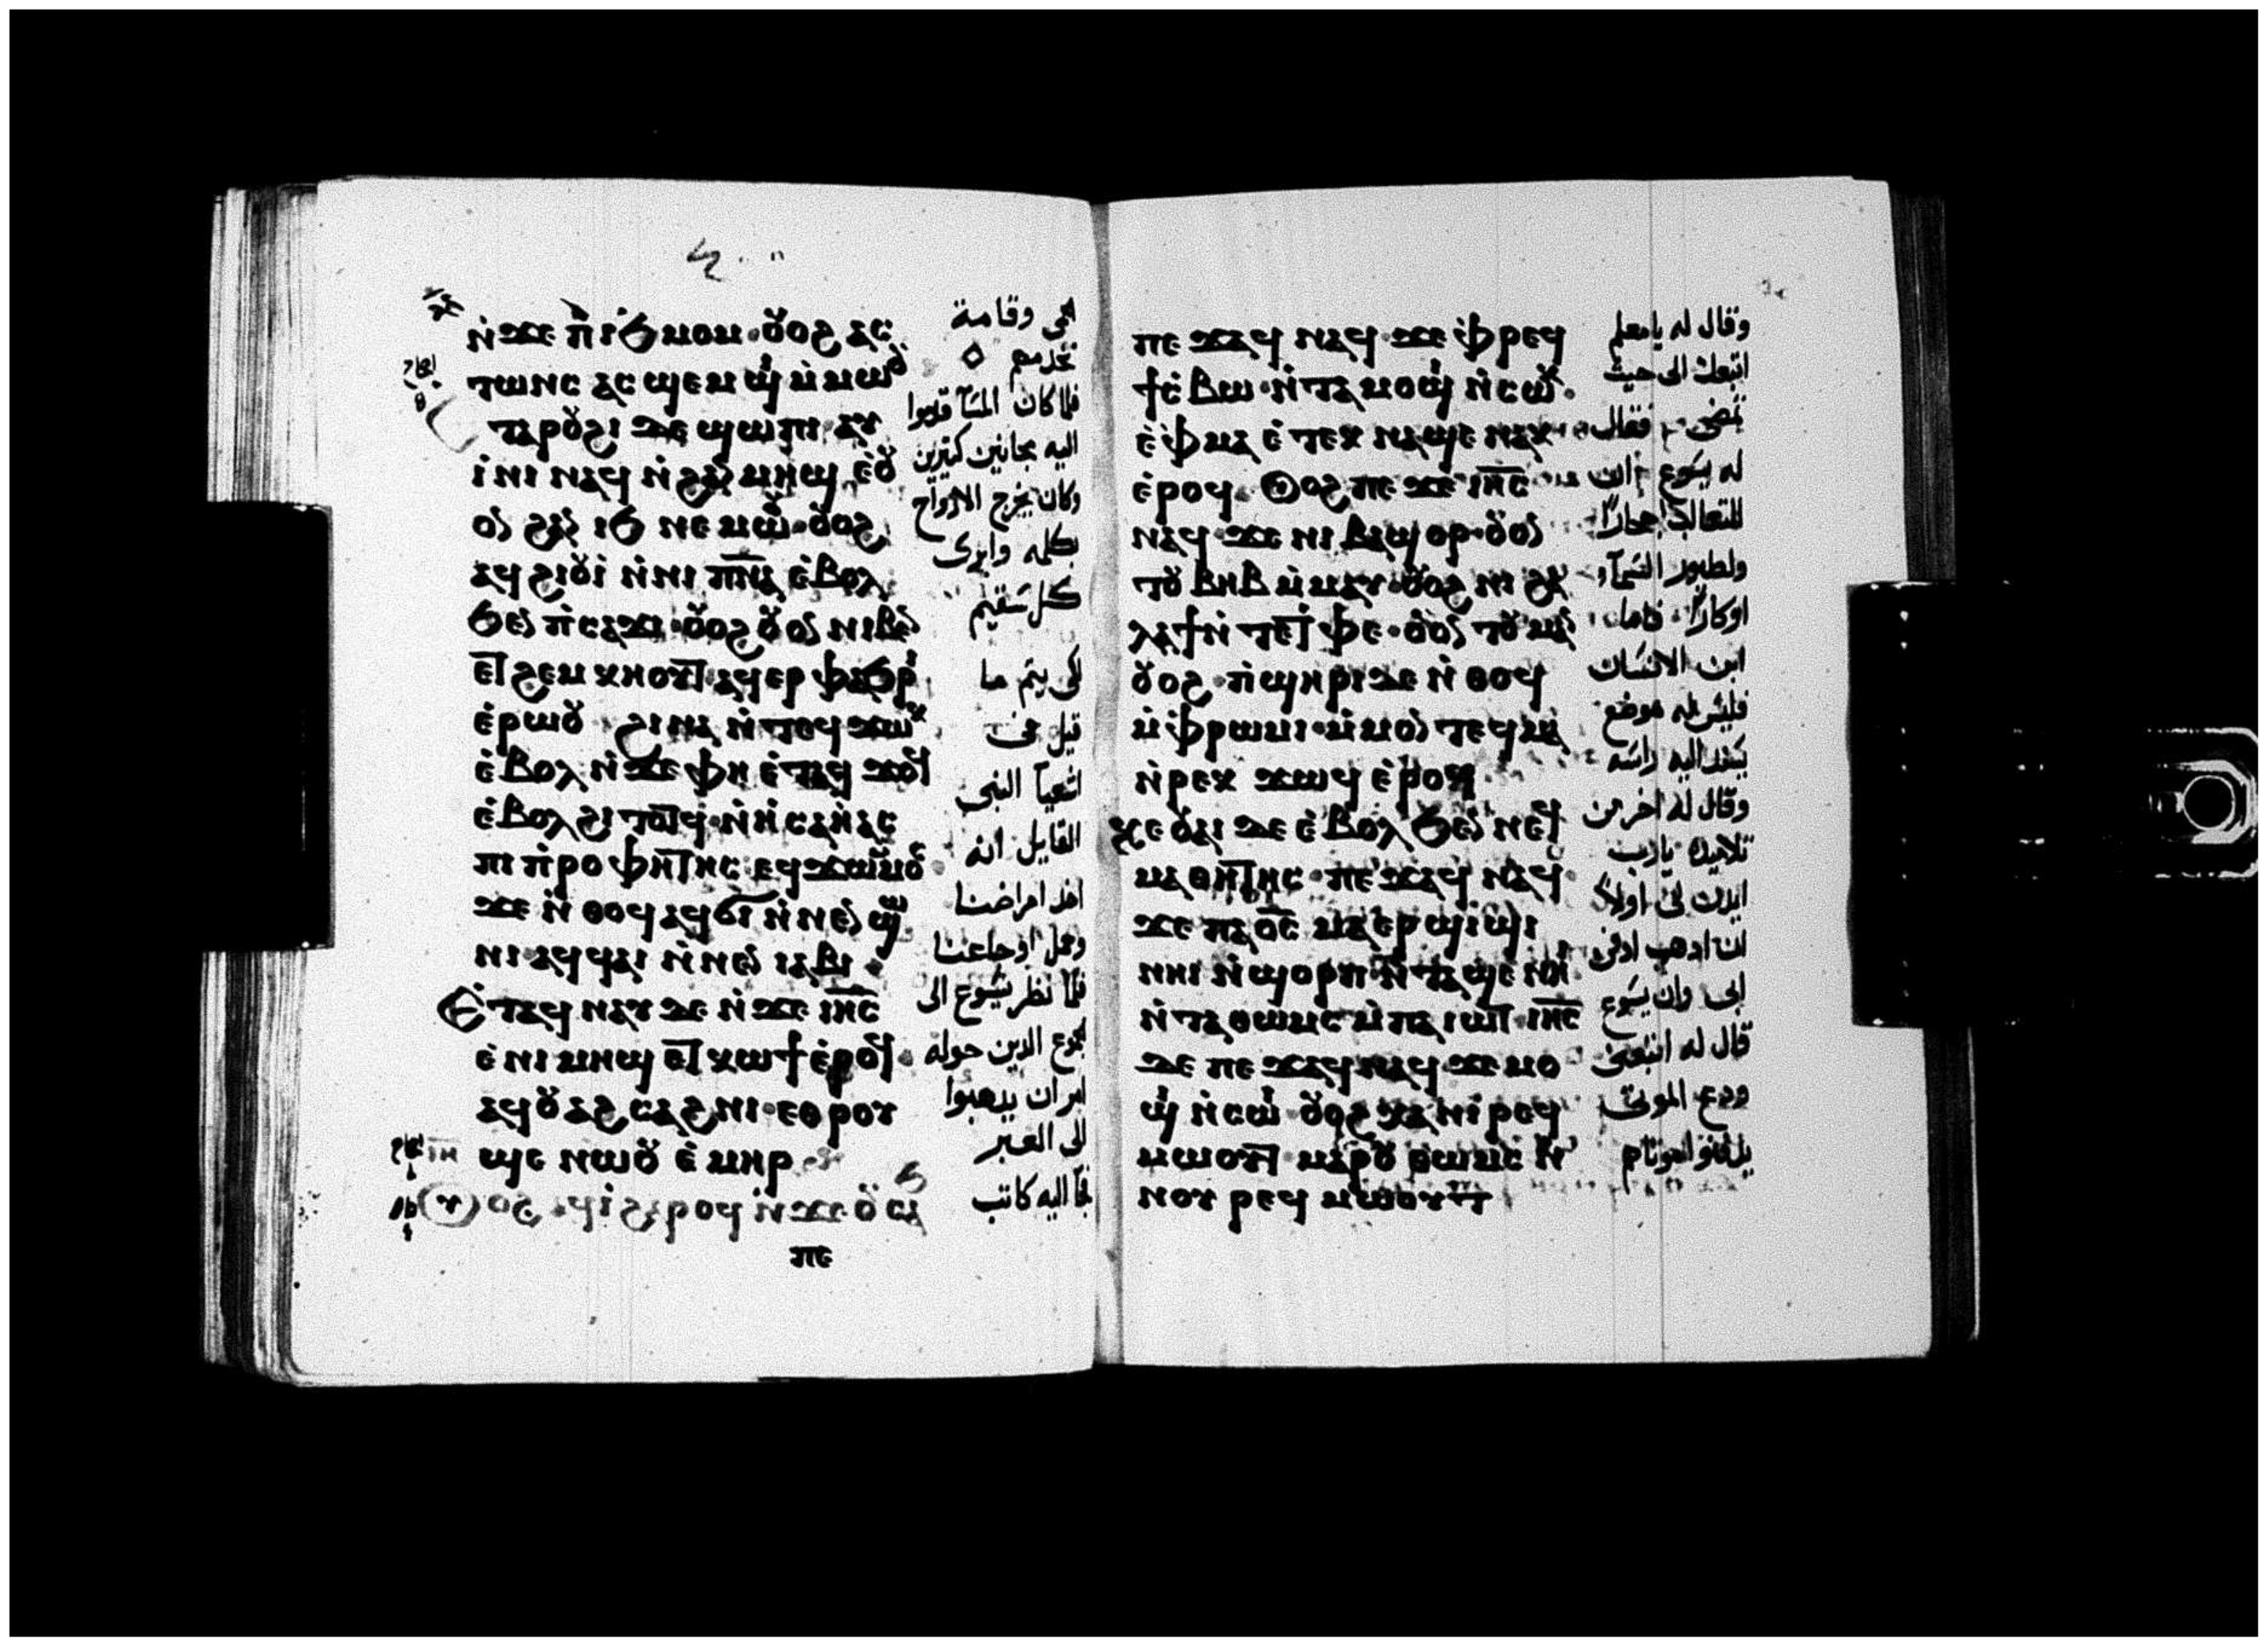 ⲛ̇ϫⲉ ⲡ̇ⲓϧⲙⲟⲙ·ⲟⲩⲟϩ ⲁⲥ
ⲧⲱⲛⲥ ⲁⲥϣⲉⲙϣⲓ ⲙ̇ⲙⲱⲟⲩ
ⲧⲁⲣⲟⲩϩⲓ ⲇⲉ ϣⲱⲡⲓ ⲁⲩ
ⲓ̇ⲛⲓ ⲛⲁϥ ⲛ̇ϩⲁⲛⲙⲏϣ ⲉ̇ⲟⲩ
ⲟⲛ ϩⲁⲛ ⲓϧ ⲛⲉⲙⲱⲟⲩ·ⲟⲩⲟϩ
ⲁϥϩⲓⲟⲩⲓ̇ ⲛ̇ⲛⲓ ⲡ̅ⲛ̅ⲁ̅ ⲉ̇ⲃⲟⲗ
ϧⲉⲛ ⲡ̇ⲥⲁϫⲓ·ⲟⲩⲟϩ ⲟⲩⲟⲛ ⲛⲓⲃⲉⲛ
ⲉⲧϩⲉⲙⲕⲏⲟⲩⲧ·ⲁϥⲉⲣⲫⲁϧⲣⲓ
ⲉ̇ⲣⲱⲟⲩ ϩⲓⲛⲁ ⲛ̇ⲧⲉϥϫⲱⲕ
ⲉ̇ⲃⲟⲗ ⲛ̇ϫⲉ ⲫⲏ ⲉ̇ⲧⲁϥ
ⲉ̇ⲃⲟⲗϩⲓⲧⲟⲧϥ·ⲛ̇ⲏ̇ⲥⲁⲏ̇ⲁⲥ
ⲡⲓⲡ̇ⲣⲟⲫⲏⲧⲏⲥ ⲉϥϫⲱⲙⲙⲟⲥ
ϫⲉ ⲛ̇ⲑⲟϥ ⲁϥϭⲓ ⲛ̇ⲛⲉⲛϣⲱ
ⲛⲓ·ⲁϥϥⲁⲓ ⲛ̇ⲛⲉⲛ ⲓⲁⲃⲓ·
Ⲉ̇ⲧⲁϥⲛⲁⲩ ⲇⲉ ⲛ̇ϫⲉ ⲓ̅ⲏ̅ⲥ̅
ⲉ̇ⲛⲓⲙⲏϣ ⲉⲧⲕⲱϯ ⲉ̇ⲣⲟϥ·
ⲁϥⲟⲩⲁϩⲥⲁϩⲛⲓ·ⲉⲑⲣⲟⲩ
ϣⲉ ⲛⲱⲟⲩ ⲉ̇ⲙⲏⲣ
ⲟⲩⲟϩ ⲁϥⲓ̇ ϩⲁⲣⲟϥ ⲛ̇ϫⲉ ⲟⲩⲥⲁϧ
ⲡⲉ
الحمى وقامة
تخدمهم
فلما كان المسآ قدموا
اليه مجانين كثيرين
وكان يخرج الارواح
بكلمه وابرى
كل سقيم
لكى يتم ما
قيل من
اشعيآ النبى
القايل انه
اخد امراضنا
وحمل اوجاعنا
فلما نظر يسوع الى
الجموع الدين حوله
امر ان يدهبوا
الى العبر
فجآ اليه كاتب
ⲡⲉϫⲁϥ ⲛⲁϥ·ϫⲉ ⲫ̇ⲣⲉϥ
ϯⲥ̇ⲃⲱ·ⲛ̇ⲧⲁⲙⲟϣⲓ ⲛ̇ⲥⲱⲕ·
ⲉ̇ⲫⲙⲁ ⲉ̇ⲧⲉⲕⲛⲁϣⲉ ⲛⲁⲕ
ⲉ̇ⲣⲟϥ·Ⲟⲩⲟϩ ⲡⲉϫⲉ ⲓ̅ⲏ̅ⲥ̅
ⲛⲁϥ·ϫⲉ ⲛⲓⲃⲁϣⲟⲣ·ⲟⲩⲟⲛ
ⲧⲟⲩ ⲃⲏⲃ ⲙ̇ⲙⲁⲩ·ⲟⲩⲟϩ ⲛⲓϩⲁ
ⲗⲁϯ ⲛ̇ⲧⲉⲧⲫⲉ·ⲟⲩⲟⲛⲧⲟⲩ ⲙⲁⲛ
ⲟⲩⲟϩ·ⲡ̇ϣⲏⲣⲓ ⲇⲉ ⲛ̇ⲑⲟϥ
ⲙ̇ⲫⲣⲱⲙⲓ·ⲙ̇ⲙⲟⲛⲧⲉϥ ⲙⲁ
ⲛ̇ⲣⲉⲕ ϫⲱϥ ⲉ̇ⲣⲟϥ
ⲕⲉⲟⲩⲁⲓ ⲇⲉ ⲉ̇ⲃⲟⲗ ϧⲉⲛ ⲛⲉϥ
ⲙⲁⲑⲏⲧⲏⲥ·ⲡⲉϫⲁϥ ⲛⲁϥ·
ϫⲉ ⲡⲁⲟ̅ⲥ̅ ⲙⲁⲉ̇ⲣϣⲓϣⲓ
ⲛⲏⲓ ⲛ̇ϣⲟⲣⲡ ⲛ̇ⲧⲁϣⲉ ⲛⲏⲓ
ⲛ̇ⲧⲁⲑⲱⲙⲥ ⲙ̇ⲡⲁⲓⲱⲧ ⲓ̅ⲏ̅ⲥ̅
ⲇⲉ ⲡⲉϫⲁϥ ⲛⲁϥ·ϫⲉ ⲙⲟ
ϣⲓ ⲛ̇ⲥⲱⲓ ⲟⲩⲟϩ ⲭⲁ ⲛⲓⲣⲉϥ
ⲙⲱⲟⲩⲧ ⲙⲁⲣⲟⲩ ⲑⲱⲙⲥ ⲛ̇
ⲛⲟⲩⲣⲉϥⲙⲱⲟⲩⲧ
وقال له يا معلم
اتبعك الى حيث
تمضى فقال
له يسوع ان
للتعالب اجحارًا
ولطيور السمآء
اوكارًا فاما
ابن الانسان
فليس له موضع
يسند اليه راسه
وقال له اخر من
تلاميده يارب
ايدن لى اولاً
ان ادهب ادفن
ابى وان يسوع
قال له اتبعنى
ودع الموتى
يدفنوا موتاهم